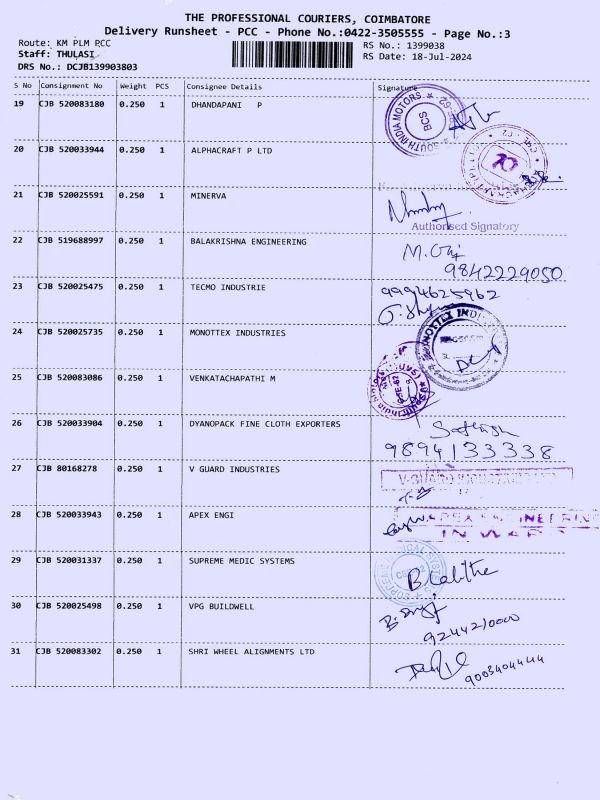 THE PROFESSIONAL COURIERS, COIMBATORE
Delivery Runsheet - PCC - Phone No.:0422-3505555 - Page No.:3
Route: KM PLM PCC RS No.: 1399038
Staff: THULASI RS Date: 18-Jul-2024
DRS No.: DCJB139903803
S No Consignment No Weight PCS Consignee Details Signature
19 CJB 520083180 0.250 1 DHANDAPANI P
SOUTH INDIA MOTORS BCS
20 CJB 520033944 0.250 1 ALPHACRAFT P LTD
21 CJB 520025591 0.250 1 MINERVA
Authorised Signatory
22 CJB 519688997 0.250 1 BALAKRISHNA ENGINEERING
9842229050
23 CJB 520025475 0.250 1 TECMO INDUSTRIE 9994625962
24 CJB 520025735 0.250 1 MONOTTEX INDUSTRIES
25 CJB 520083086 0.250 1 VENKATACHAPATHI M
26 CJB 520033904 0.250 1 DYANOPACK FINE CLOTH EXPORTERS
Sathish
9894133338
27 CJB 80168278 0.250 1 V GUARD INDUSTRIES
28 CJB 520033943 0.250 1 APEX ENGI
APEX ENGINEERING
29 CJB 520031337 0.250 1 SUPREME MEDIC SYSTEMS
B Lalitha
30 CJB 520025498 0.250 1 VPG BUILDWELL
9244210000
31 CJB 520083302 0.250 1 SHRI WHEEL ALIGNMENTS LTD
9003404444